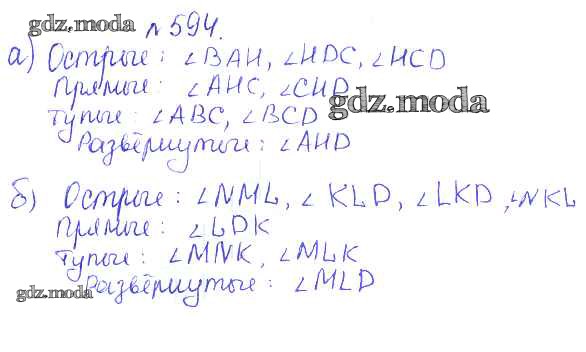 gdz.moda №594.
а) Острые: ∠BAH, ∠HDC, ∠HCD
Прямые: ∠AHC, ∠CHD
gdz.moda
Тупые: ∠ABC, ∠BCD
Развёрнутые: ∠AHD
б) Острые: ∠NML, ∠KLD, ∠LKD, ∠NKL
Прямые: ∠LDK
Тупые: ∠MNK, ∠MLK
Развёрнутые: ∠MLD
gdz.moda